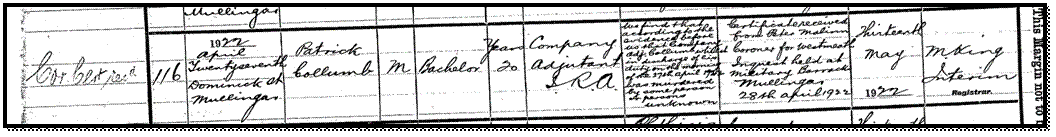 Mullingar
Cor Cert, rec'd
116
1922
April
Twentyseventh
Dominick St
Mullingar
Patrick
Collumb
M
Bachelor
Years
20
Company
Adjutant
I.R.A.
We find that
according to the
evidence before
us that Company
Adj Collumb whilst
in charge of
duty on the
of the 27th April 1922
was murdered
by some person
or persons
unknown
Certificate received
from Peter Malinn
Coroner for Westmeath
Inquest held at
Military Barrack
Mullingar
28th April 1922
Thirteenth
May
1922
M King
Interim
Registrar.
This margin not to
Thirteenth